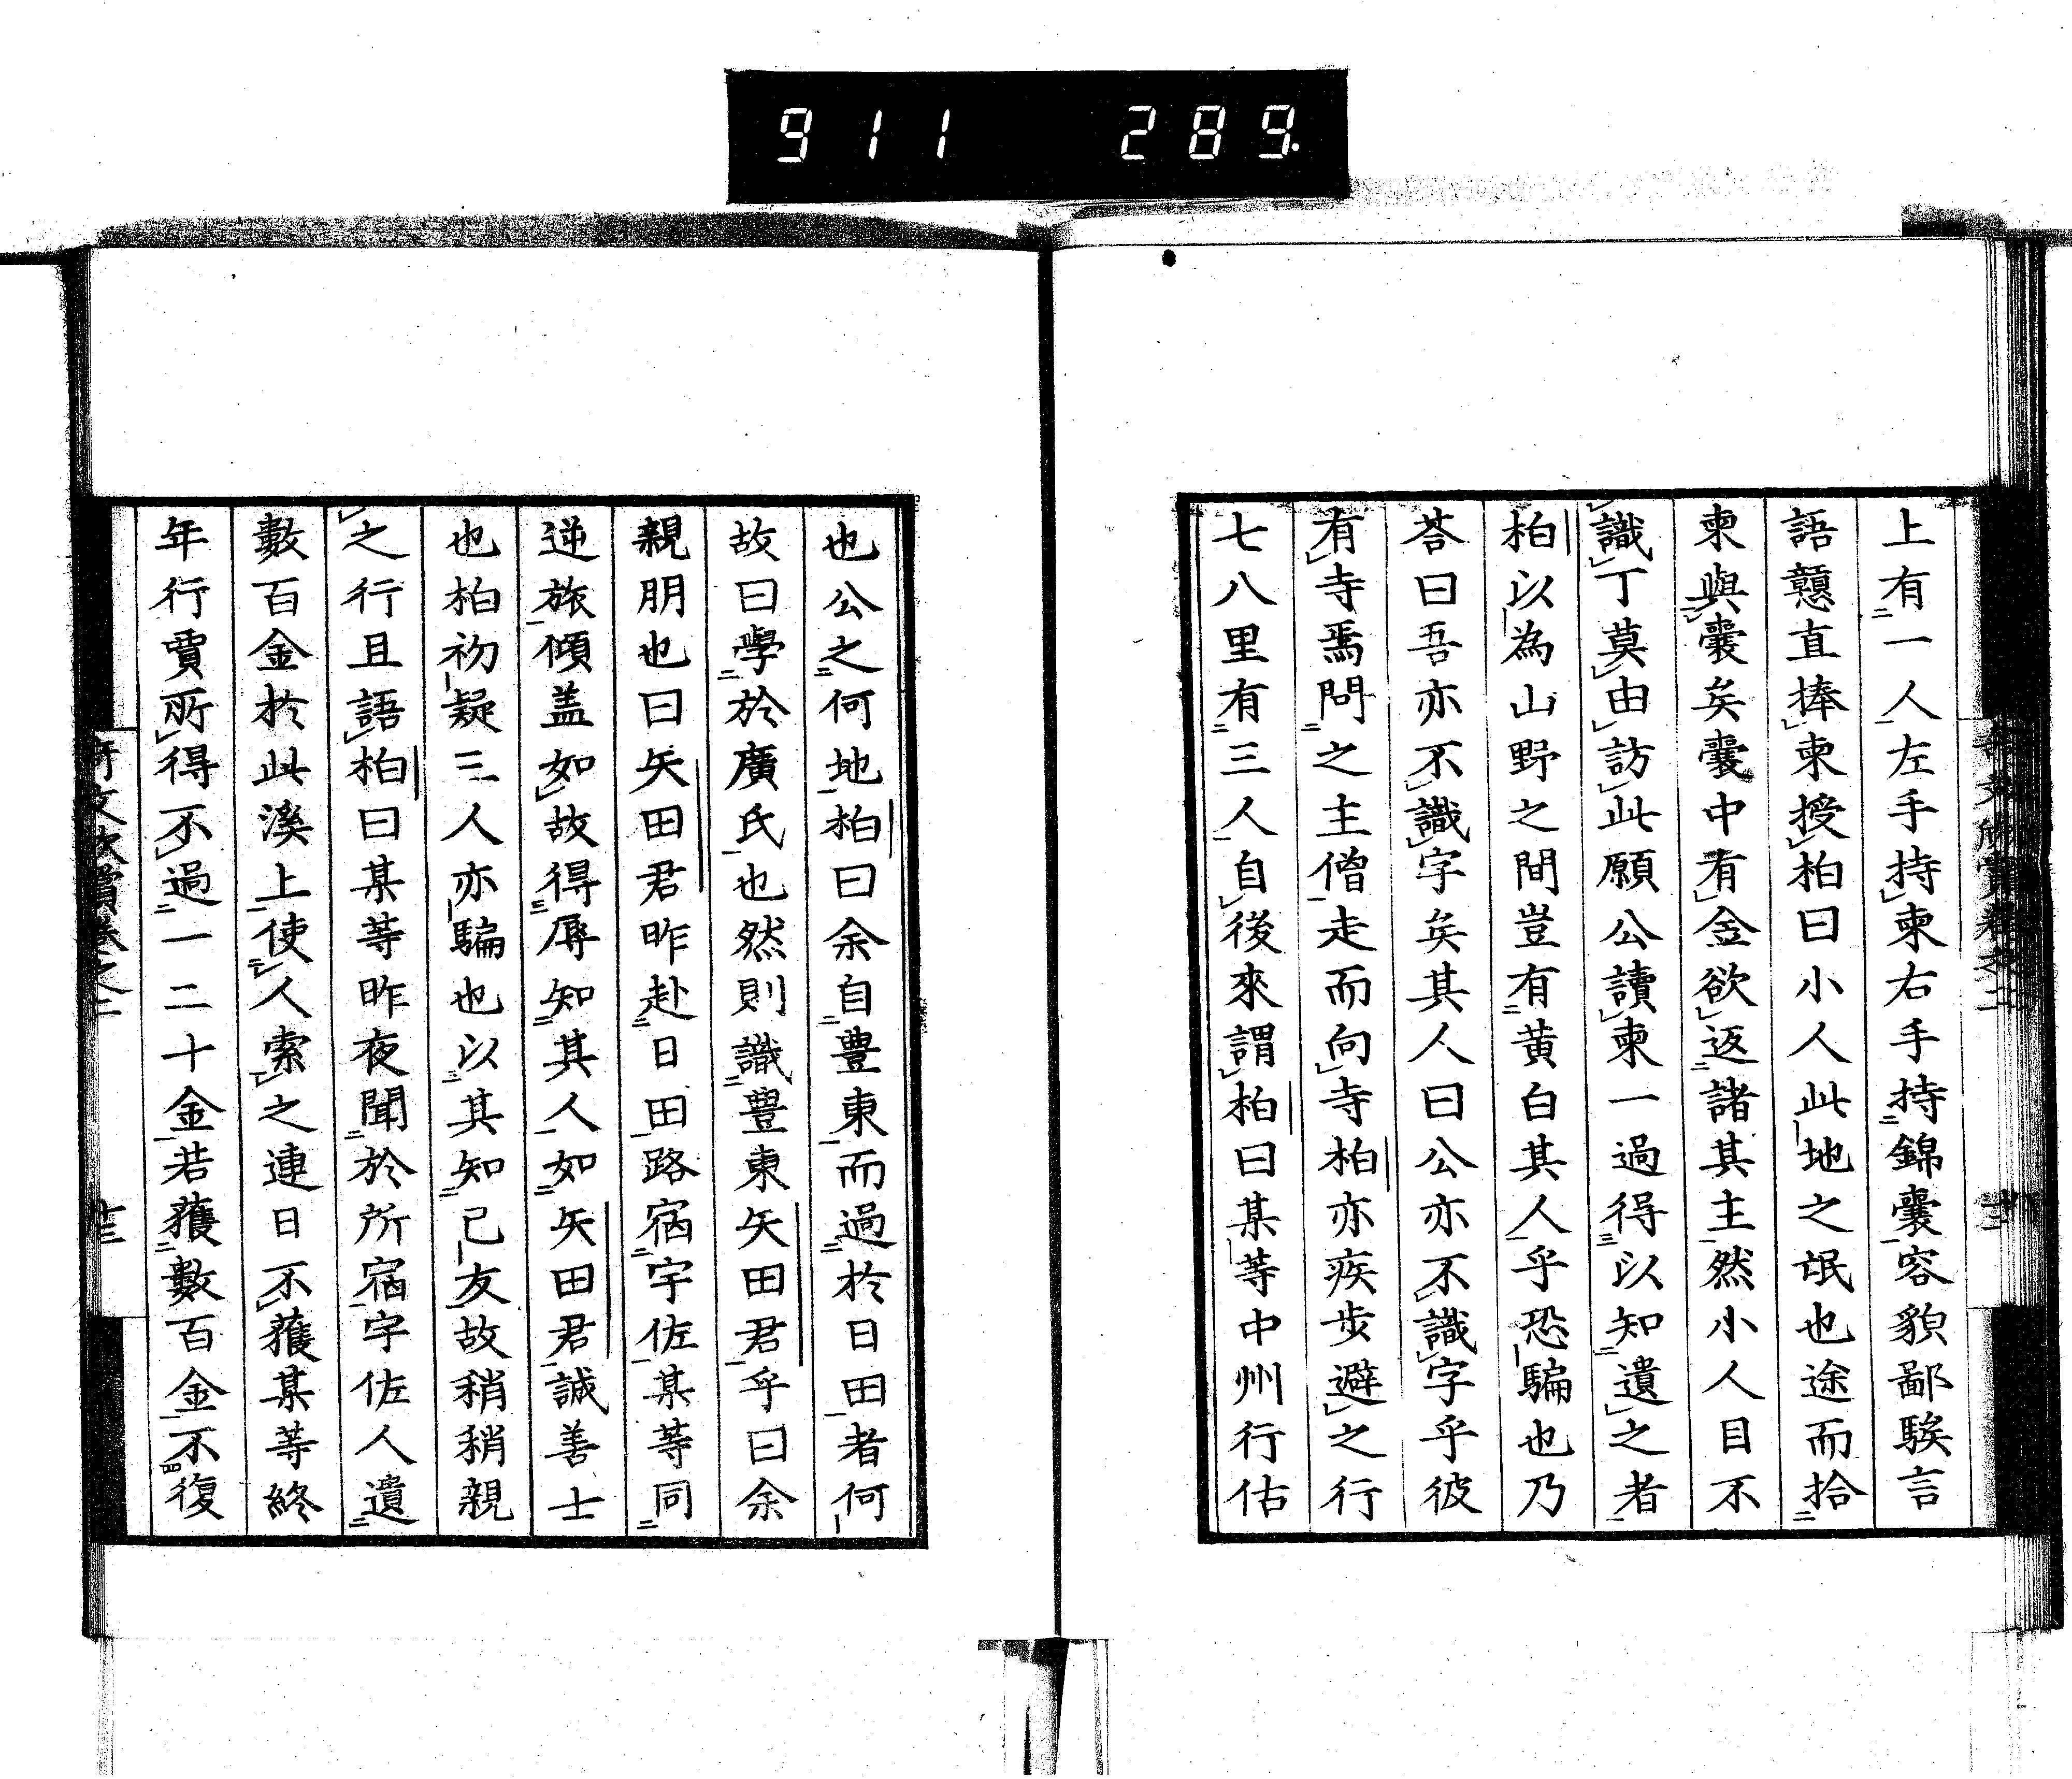 911 289.
上有一人左手持柬右手持錦囊容貌鄙騃言
語戇直捧柬授柏曰小人此地之氓也途而拾
柬與囊矣囊中有金欲返諸其主然小人目不
識丁莫由訪此願公讀柬一過得以知遺之者
柏以為山野之間豈有黄白其人乎恐騙也乃
荅曰吾亦不識字矣其人曰公亦不識字乎彼
有寺焉問之主僧走而向寺柏亦疾步避之行
七八里有三人自後來謂柏曰某等中州行估
也公之何地柏曰余自豊東而過於日田者何
故曰學於廣氏也然則識豐東矢田君乎曰余
親朋也曰矢田君昨赴日田路宿宇佐某等同
逆旅傾盖如故得辱知其人如矢田君誠善士
也柏初疑三人亦騙也以其知己友故稍稍親
之行且語柏曰某等昨夜聞於所宿宇佐人遺
數百金於此溪上使人索之連日不獲某等終
年行賣所得不過一二十金若獲數百金不復
奇文欣賞卷之二
廿三